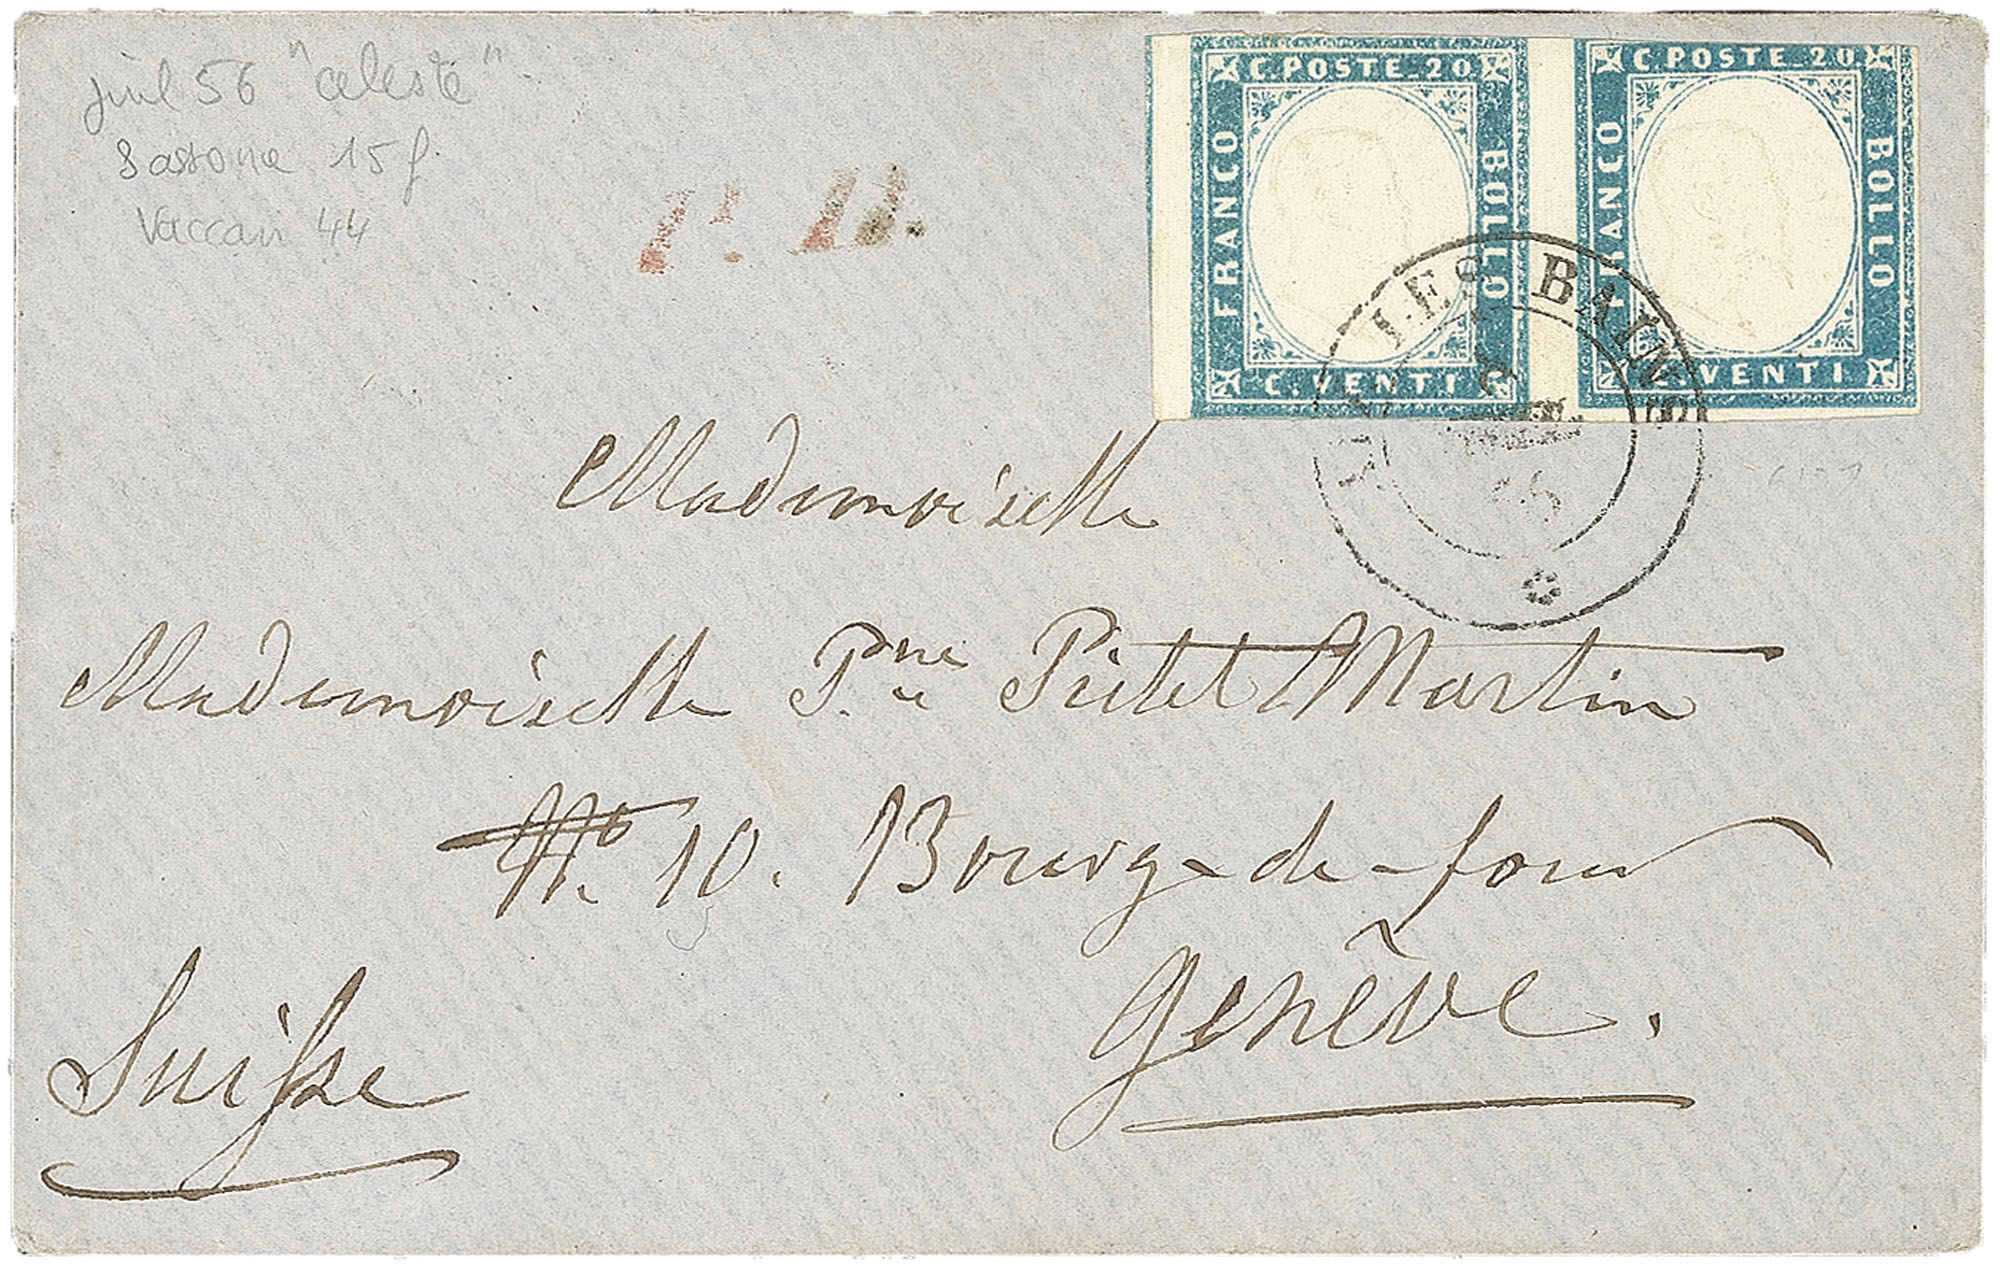 juil 56 "celeste"
Sassone 15 f.
Vaccari 44
P. D.
C. POSTE_20
FRANCO
BOLLO
C. VENTI
C. POSTE_20
FRANCO
BOLLO
C. VENTI
LES BAINS
56
Mademoiselle
Mademoiselle Pne Pictet Martin
No. 10. Bourg-de-four
Genève.
Suisse